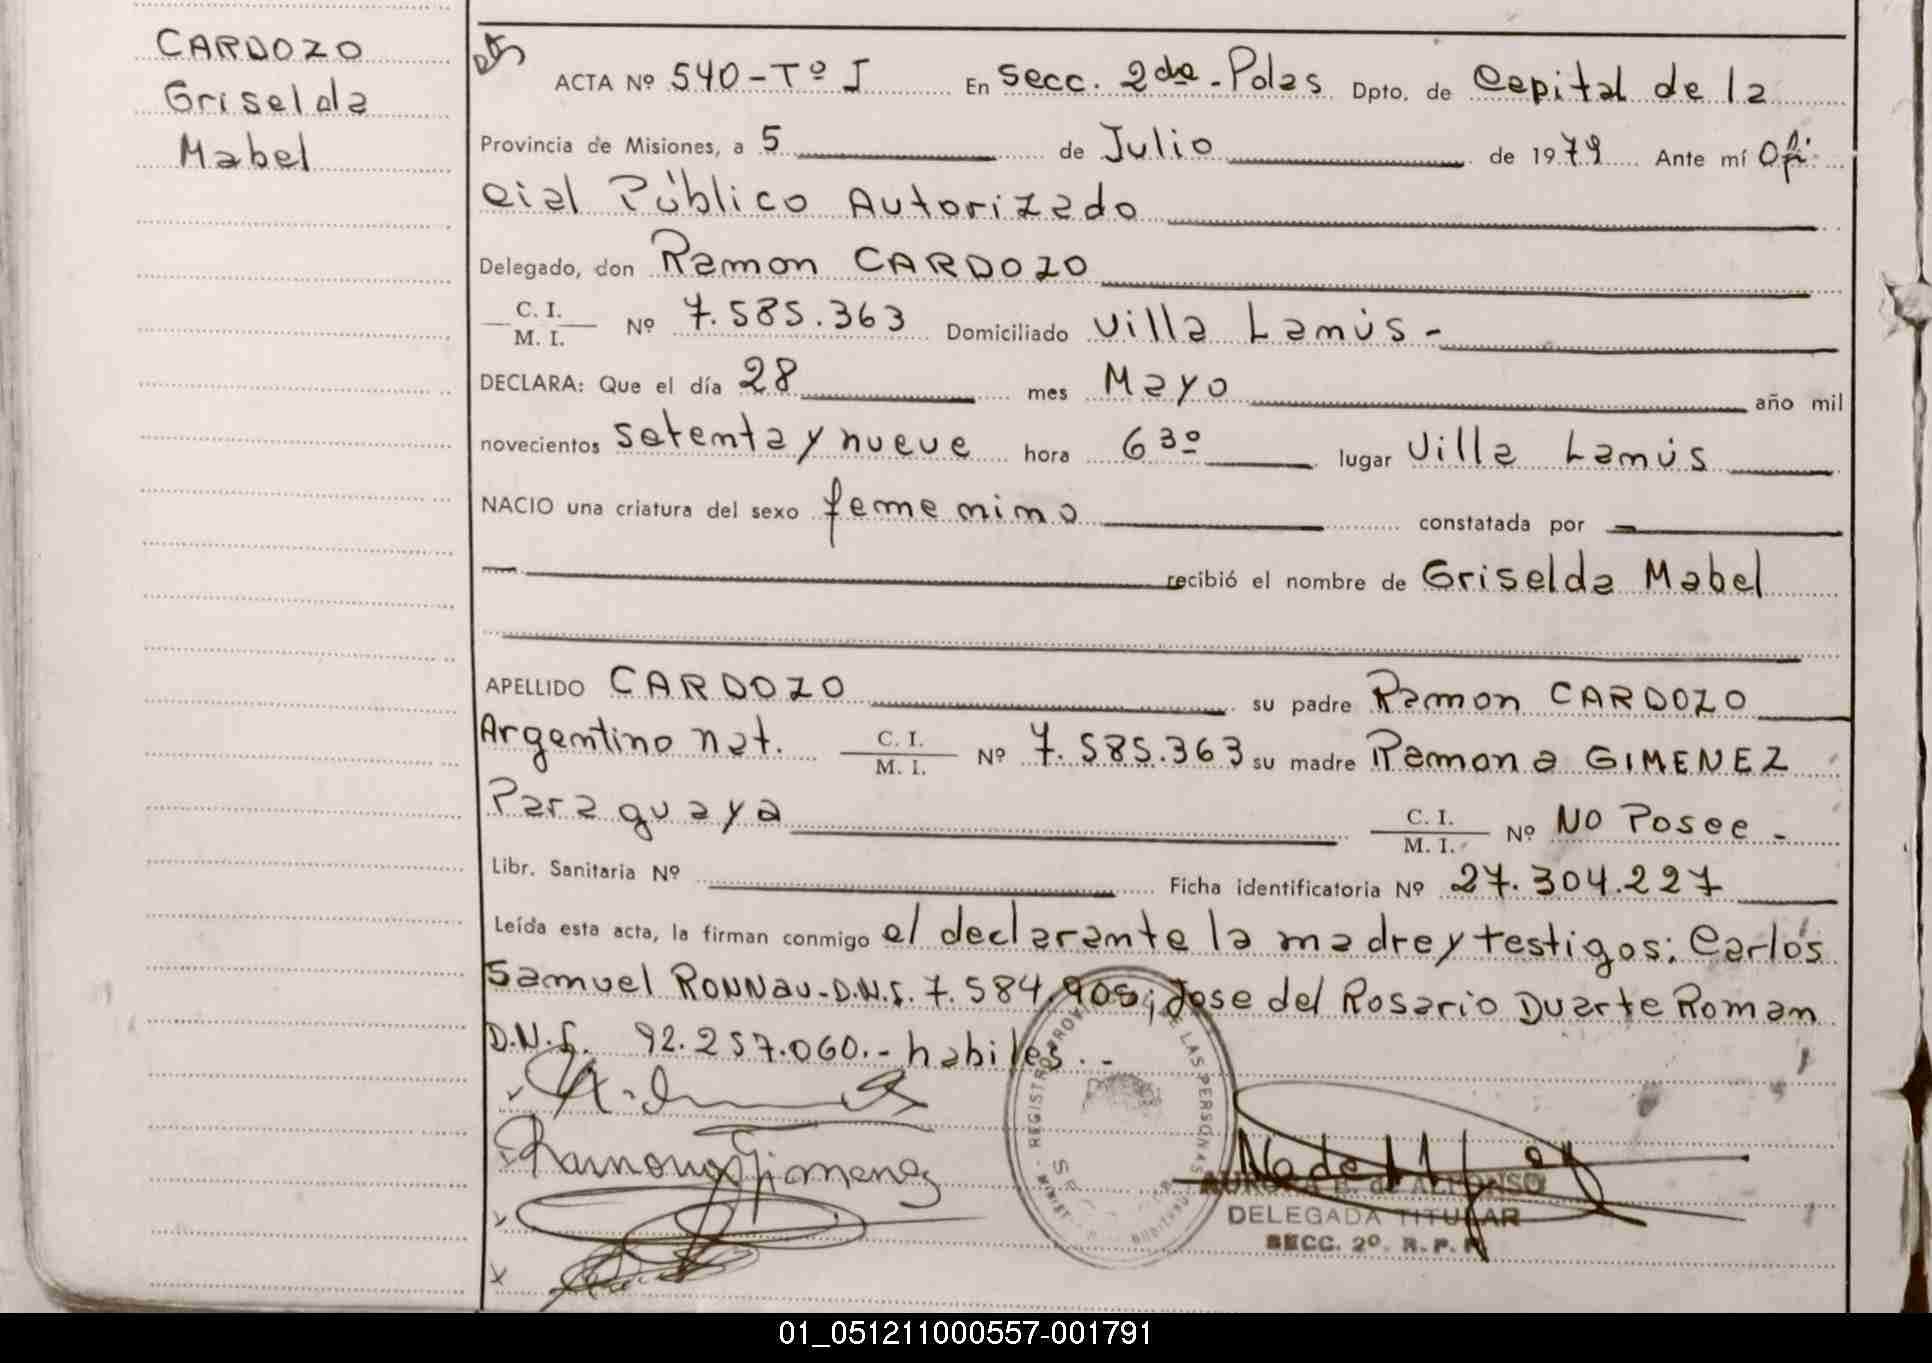 CARDOZO
Griselda
Mabel
ACTA Nº 540-Tº I En Secc. 2da - Pdas Dpto. de Capital de la
Provincia de Misiones, a 5 de Julio de 1979 Ante mí Ofi
cial Público Autorizado
Delegado, don Ramon CARDOZO
C. I.
M. I. Nº 7.585.363 Domiciliado Villa Lanús -
DECLARA: Que el día 28 mes Mayo año mil
novecientos setenta y nueve hora 6 30 lugar Villa Lanús
NACIO una criatura del sexo femenino constatada por
recibió el nombre de Griselda Mabel
APELLIDO CARDOZO su padre Ramon CARDOZO
Argentino nat. C. I.
M. I. Nº 7.585.363 su madre Ramona GIMENEZ
Paraguaya C. I.
M. I. Nº NO Posee -
Libr. Sanitaria Nº Ficha identificatoria Nº 27.304.227
Leída esta acta, la firman conmigo el declarante la madre y testigos: Carlos
Samuel RONNau-D.N.I. 7.584.905; Jose del Rosario Duarte Roman
D.N.I. 92.257.060.- habiles.-
Ramona Gimenez
REGISTRO PROVI DE LAS PERSONAS
AURORA B. de ALFONSO
DELEGADA TITULAR
SECC. 2º. R. P. P.
01_051211000557-001791